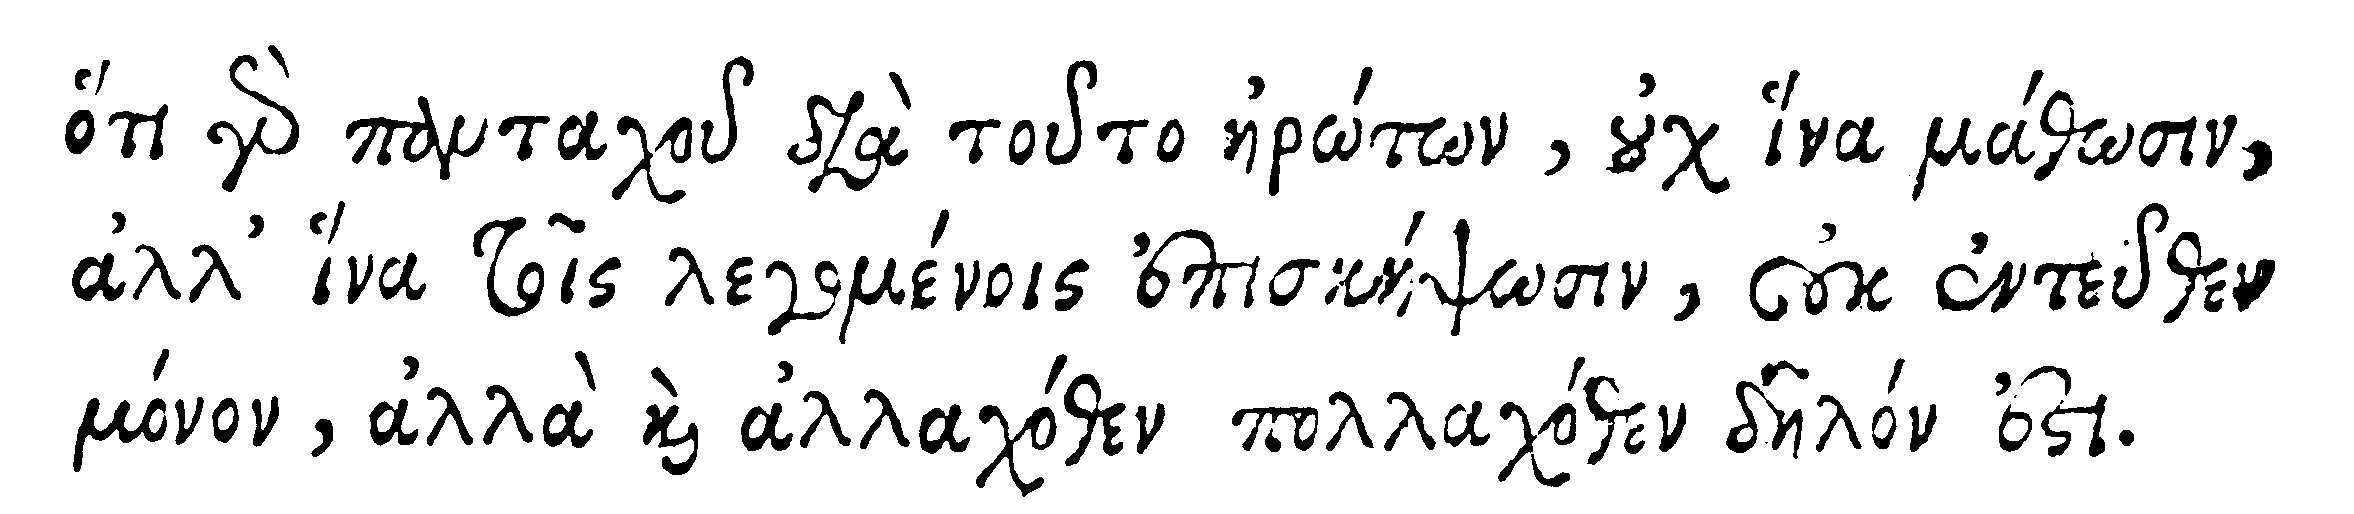 ὅτι γὰρ πανταχοῦ διὰ τοῦτο ἠρώτων, οὐχ ἵνα μάθωσιν,
ἀλλ' ἵνα τοῖς λεγομένοις ἐπισκήψωσιν, οὐκ ἐντεῦθεν
μόνον, ἀλλὰ καὶ ἀλλαχόθεν πολλαχόθεν δῆλόν ἐστι.